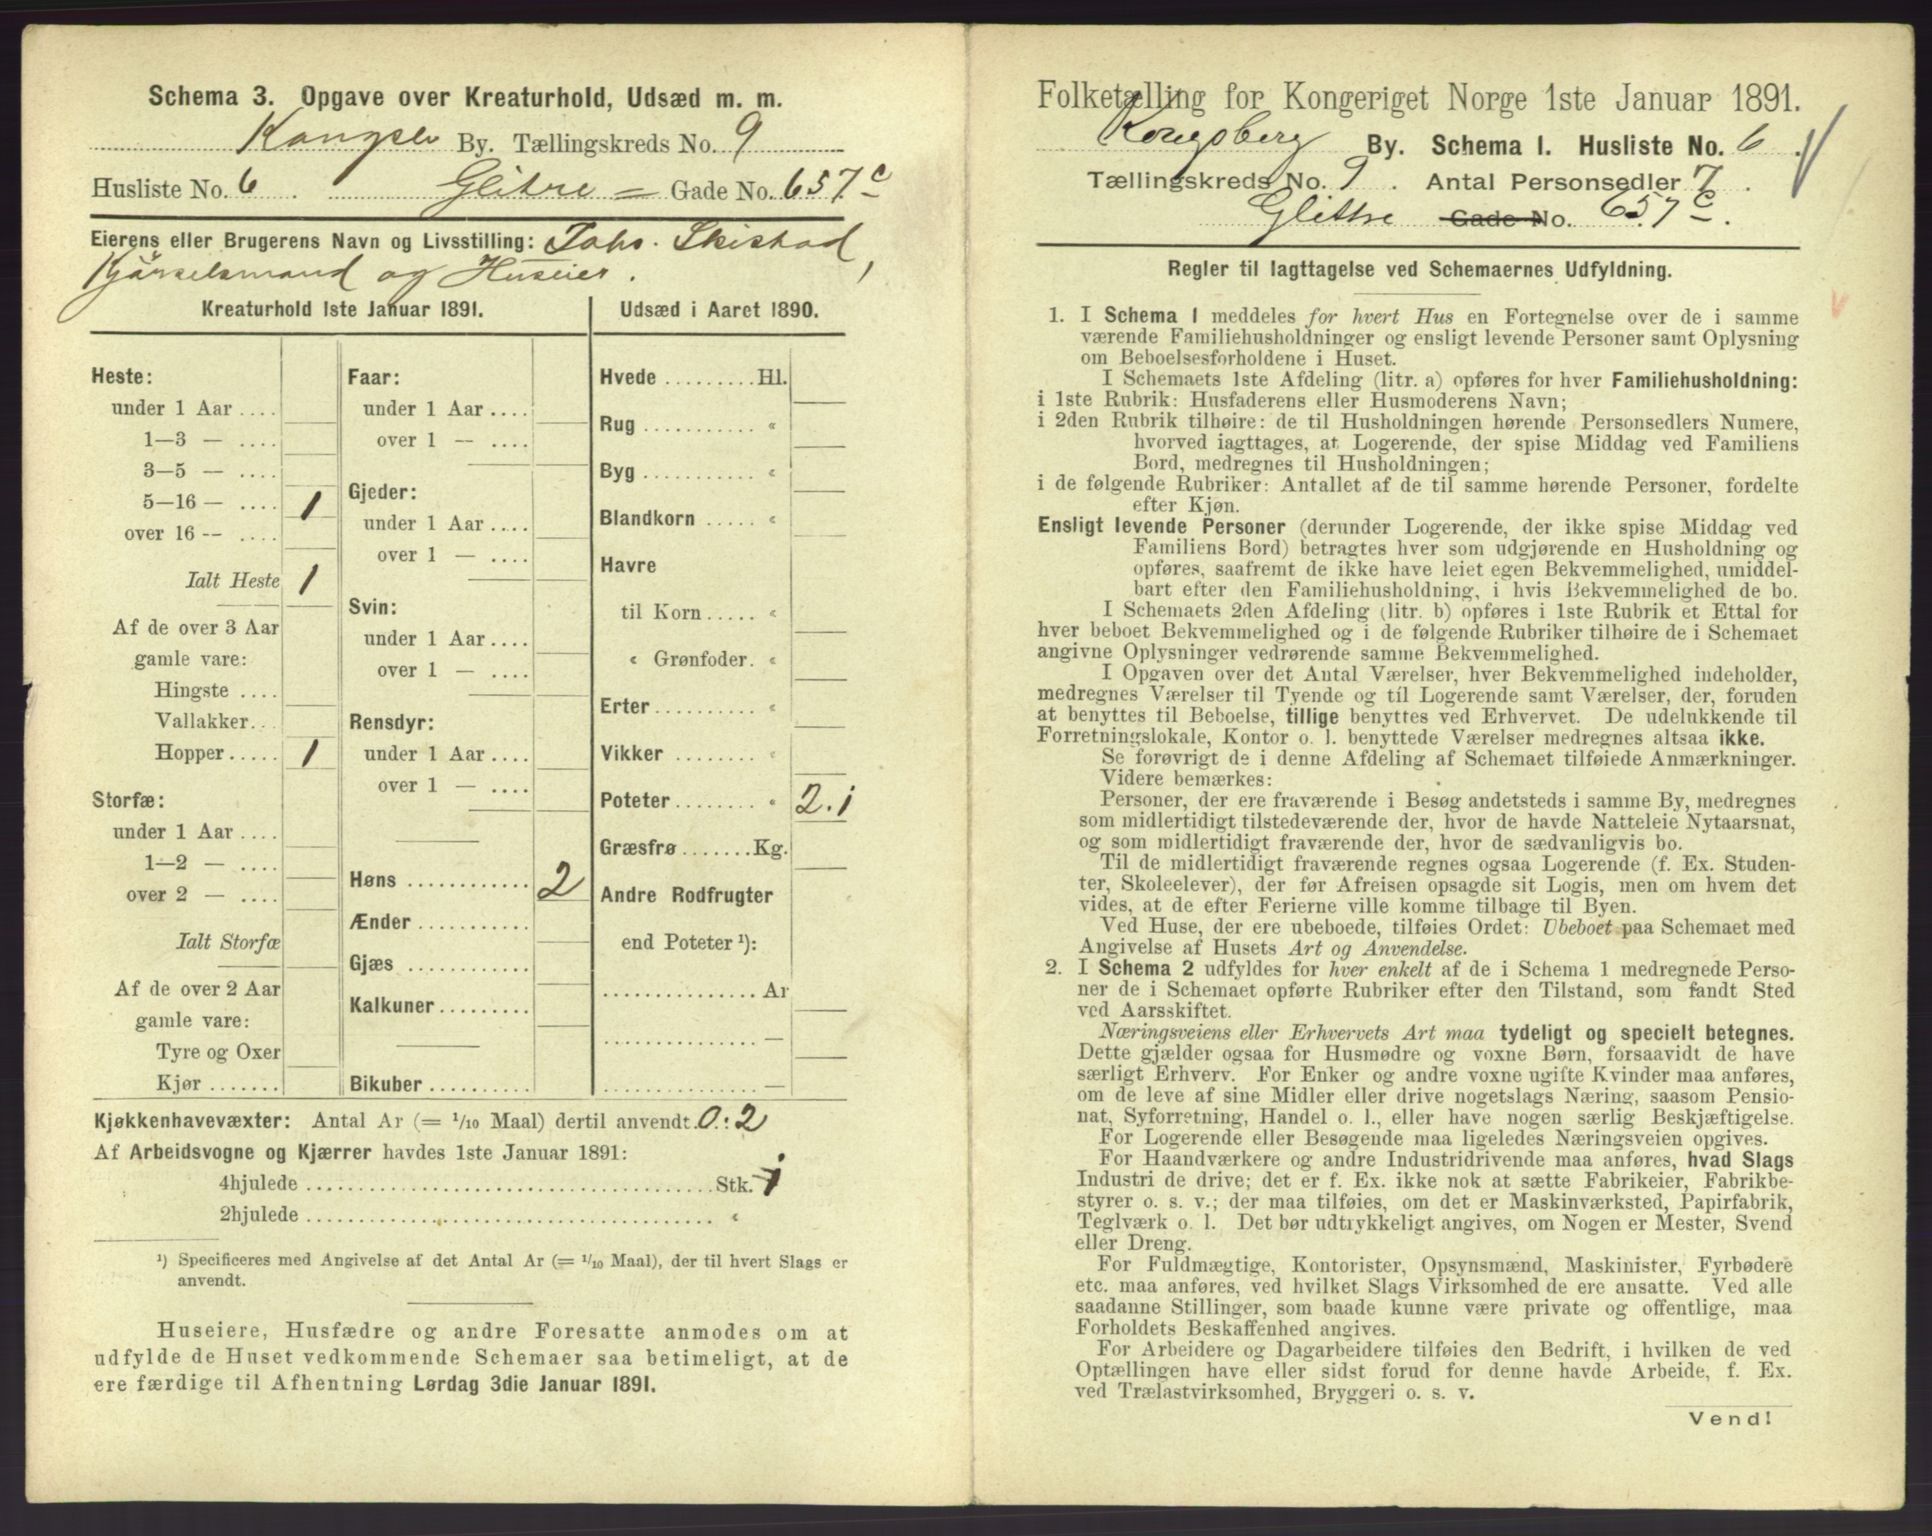 Schema 3. Opgave over Kreaturhold, Udsæd m. m.
Kongsb By. Tællingskreds No. 9
Husliste No. 6 Glitre = Gade No. 657 c
Eierens eller Brugerens Navn og Livsstilling: Johs. Skistad,
Kjørselsmand og Huseier.
Kreaturhold 1ste Januar 1891.
Heste:
under 1 Aar ....
1—3 — ....
3—5 — ....
5—16 — .... 1
over 16 — ....
Ialt Heste 1
Af de over 3 Aar
gamle vare:
Hingste ....
Vallakker...
Hopper..... 1
Storfæ:
under 1 Aar ....
1—2 — ....
over 2 — ....
Ialt Storfæ
Af de over 2 Aar
gamle vare:
Tyre og Oxer
Kjør .......
Faar:
under 1 Aar ....
over 1 — ....
Gjeder:
under 1 Aar ....
over 1 — ....
Svin:
under 1 Aar ....
over 1 — ....
Rensdyr:
under 1 Aar ....
over 1 — ....
Høns ............ 2
Ænder ...........
Gjæs ............
Kalkuner.........
Bikuber ..........
Udsæd i Aaret 1890.
Hvede ......... Hl.
Rug ........... «
Byg ........... «
Blandkorn ..... «
Havre
til Korn ..... «
« Grønfoder. «
Erter.......... «
Vikker ........ «
Poteter ........ « 2.1
Græsfrø ....... Kg.
Andre Rodfrugter
end Poteter ¹):
............... Ar
............... —
............... —
Kjøkkenhavevæxter: Antal Ar (= 1/10 Maal) dertil anvendt. 0.2
Af Arbeidsvogne og Kjærrer havdes 1ste Januar 1891:
4hjulede ....................................... Stk. 1
2hjulede ....................................... «
¹) Specificeres med Angivelse af det Antal Ar (= 1/10 Maal), der til hvert Slags er
anvendt.
Huseiere, Husfædre og andre Foresatte anmodes om at
udfylde de Huset vedkommende Schemaer saa betimeligt, at de
ere færdige til Afhentning Lørdag 3die Januar 1891.
Folketælling for Kongeriget Norge 1ste Januar 1891.
Kongsberg By. Schema I. Husliste No. 6
Tællingskreds No. 9. Antal Personsedler 7.
Glittre Gade No. 657 c.
Regler til Iagttagelse ved Schemaernes Udfyldning.
1. I Schema 1 meddeles for hvert Hus en Fortegnelse over de i samme
værende Familiehusholdninger og ensligt levende Personer samt Oplysning
om Beboelsesforholdene i Huset.
I Schemaets 1ste Afdeling (litr. a) opføres for hver Familiehusholdning:
i 1ste Rubrik: Husfaderens eller Husmoderens Navn;
i 2den Rubrik tilhøire: de til Husholdningen hørende Personsedlers Numere,
hvorved iagttages, at Logerende, der spise Middag ved Familiens
Bord, medregnes til Husholdningen;
i de følgende Rubriker: Antallet af de til samme hørende Personer, fordelte
efter Kjøn.
Ensligt levende Personer (derunder Logerende, der ikke spise Middag ved
Familiens Bord) betragtes hver som udgjørende en Husholdning og
opføres, saafremt de ikke have leiet egen Bekvemmelighed, umiddel-
bart efter den Familiehusholdning, i hvis Bekvemmelighed de bo.
I Schemaets 2den Afdeling (litr. b) opføres i 1ste Rubrik et Ettal for
hver beboet Bekvemmelighed og i de følgende Rubriker tilhøire de i Schemaet
angivne Oplysninger vedrørende samme Bekvemmelighed.
I Opgaven over det Antal Værelser, hver Bekvemmelighed indeholder,
medregnes Værelser til Tyende og til Logerende samt Værelser, der, foruden
at benyttes til Beboelse, tillige benyttes ved Erhvervet. De udelukkende til
Forretningslokale, Kontor o. l. benyttede Værelser medregnes altsaa ikke.
Se forøvrigt de i denne Afdeling af Schemaet tilføiede Anmærkninger.
Videre bemærkes:
Personer, der ere fraværende i Besøg andetsteds i samme By, medregnes
som midlertidigt tilstedeværende der, hvor de havde Natteleie Nytaarsnat,
og som midlertidigt fraværende der, hvor de sædvanligvis bo.
Til de midlertidigt fraværende regnes ogsaa Logerende (f. Ex. Studen-
ter, Skoleelever), der før Afreisen opsagde sit Logis, men om hvem det
vides, at de efter Ferierne ville komme tilbage til Byen.
Ved Huse, der ere ubeboede, tilføies Ordet: Ubeboet paa Schemaet med
Angivelse af Husets Art og Anvendelse.
2. I Schema 2 udfyldes for hver enkelt af de i Schema 1 medregnede Perso-
ner de i Schemaet opførte Rubriker efter den Tilstand, som fandt Sted
ved Aarsskiftet.
Næringsveiens eller Erhvervets Art maa tydeligt og specielt betegnes.
Dette gjælder ogsaa for Husmødre og voxne Børn, forsaavidt de have
særligt Erhverv. For Enker og andre voxne ugifte Kvinder maa anføres,
om de leve af sine Midler eller drive nogetslags Næring, saasom Pensio-
nat, Syforretning, Handel o. l., eller have nogen særlig Beskjæftigelse.
For Logerende eller Besøgende maa ligeledes Næringsveien opgives.
For Haandværkere og andre Industridrivende maa anføres, hvad Slags
Industri de drive; det er f. Ex. ikke nok at sætte Fabrikeier, Fabrikbe-
styrer o. s. v.; der maa tilføies, om det er Maskinværksted, Papirfabrik,
Teglværk o. l. Det bør udtrykkeligt angives, om Nogen er Mester, Svend
eller Dreng.
For Fuldmægtige, Kontorister, Opsynsmænd, Maskinister, Fyrbødere
etc. maa anføres, ved hvilket Slags Virksomhed de ere ansatte. Ved alle
saadanne Stillinger, som baade kunne være private og offentlige, maa
Forholdets Beskaffenhed angives.
For Arbeidere og Dagarbeidere tilføies den Bedrift, i hvilken de ved
Optællingen have eller sidst forud for denne havde Arbeide, f. Ex.
ved Trælastvirksomhed, Bryggeri o. s. v.
Vend!